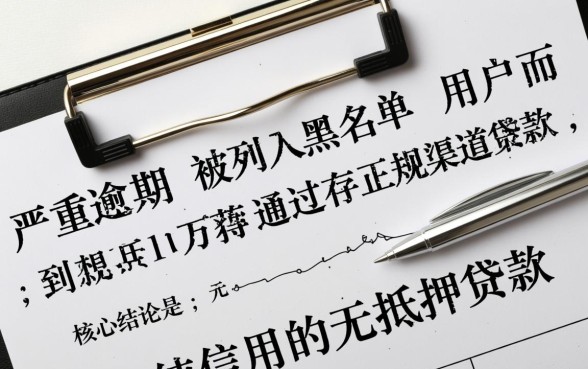 严重逾期 被列入黑名单 用户而
；到想 11万 通过存正规渠道贷款，
核心结论是；元
信用的无抵押贷款